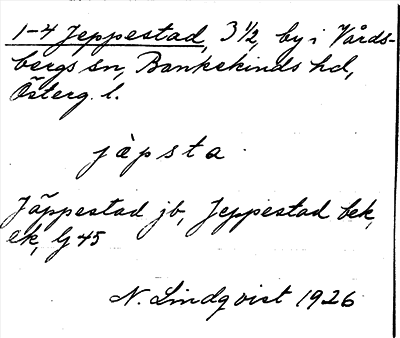 1-4 Jeppestad, 3 1/2, by i Vårds-
bergs sn, Bankekinds hd,
Österg. l.
jàpsta
Jäppestad jb, Jeppestad bek,
ek, G 45
N. Lindqvist 1926